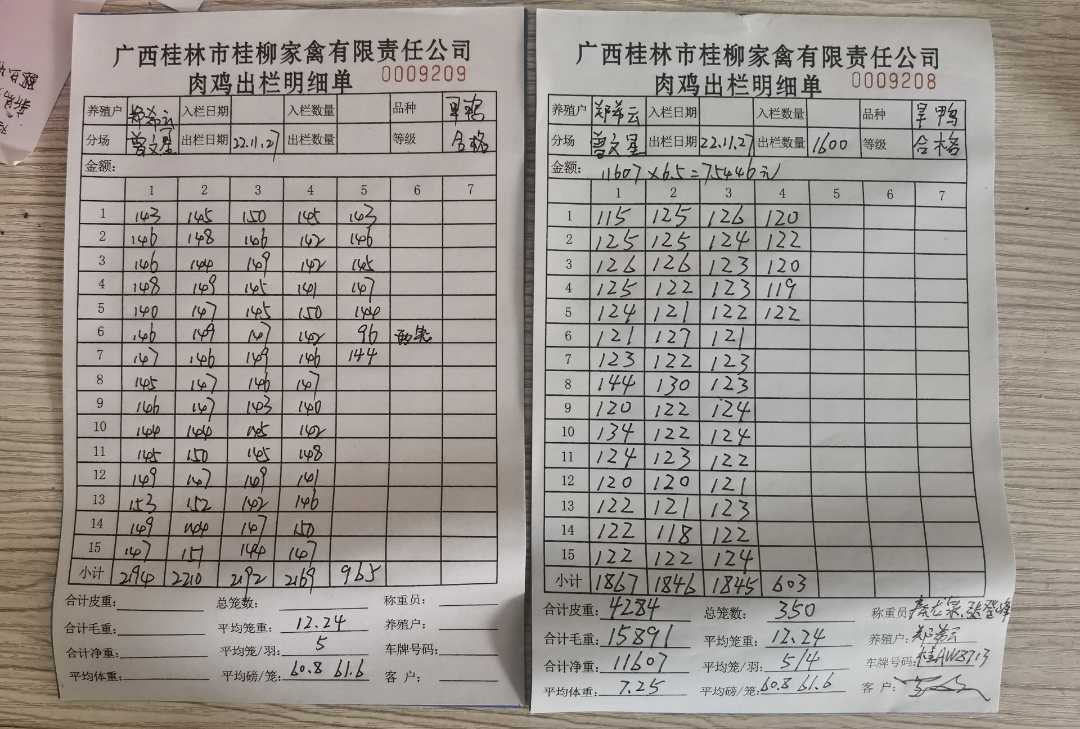 广西桂林市桂柳家禽有限责任公司
肉鸡出栏明细单 0009209
养殖户 郑芬云 入栏日期 入栏数量 品种
分场 曾文星 出栏日期 22.11.27 出栏数量 等级 合格
金额:
1 2 3 4 5 6 7
1 143 145 150 145 143
2 146 148 146 142 146
3 146 144 149 142 145
4 148 149 145 141 147
5 140 147 145 150 144
6 146 149 147 142 96
7 147 146 149 146 144
8 145 147 146 147
9 146 147 143 140
10 144 144 145 142
11 145 150 145 148
12 149 147 149 141
13 153 152 142 146
14 149 144 147 150
15 147 151 144 147
小计 2194 2210 2192 2169 965
合计皮重: 总笼数: 称重员:
合计毛重: 平均笼重: 12.24 养殖户:
合计净重: 平均笼/羽: 5 车牌号码:
平均体重: 平均磅/笼: 60.8 61.6 客户:
广西桂林市桂柳家禽有限责任公司
肉鸡出栏明细单 0009208
养殖户 郑芬云 入栏日期 入栏数量 品种 鸭
分场 曾文星 出栏日期 22.11.27 出栏数量 1600 等级 合格
金额: 11607×6.5=75446元
1 2 3 4 5 6 7
1 115 125 126 120
2 125 125 124 122
3 126 126 123 120
4 125 122 123 119
5 124 121 122 122
6 121 127 121
7 123 122 123
8 144 130 123
9 120 122 124
10 134 122 124
11 124 123 122
12 120 120 121
13 122 121 123
14 122 118 122
15 122 122 124
小计 1867 1846 1845 603
合计皮重: 4284 总笼数: 350 称重员:
合计毛重: 15891 平均笼重: 12.24 养殖户: 郑芬云
合计净重: 11607 平均笼/羽: 5/4 车牌号码:
平均体重: 7.25 平均磅/笼: 60.8 61.6 客户: